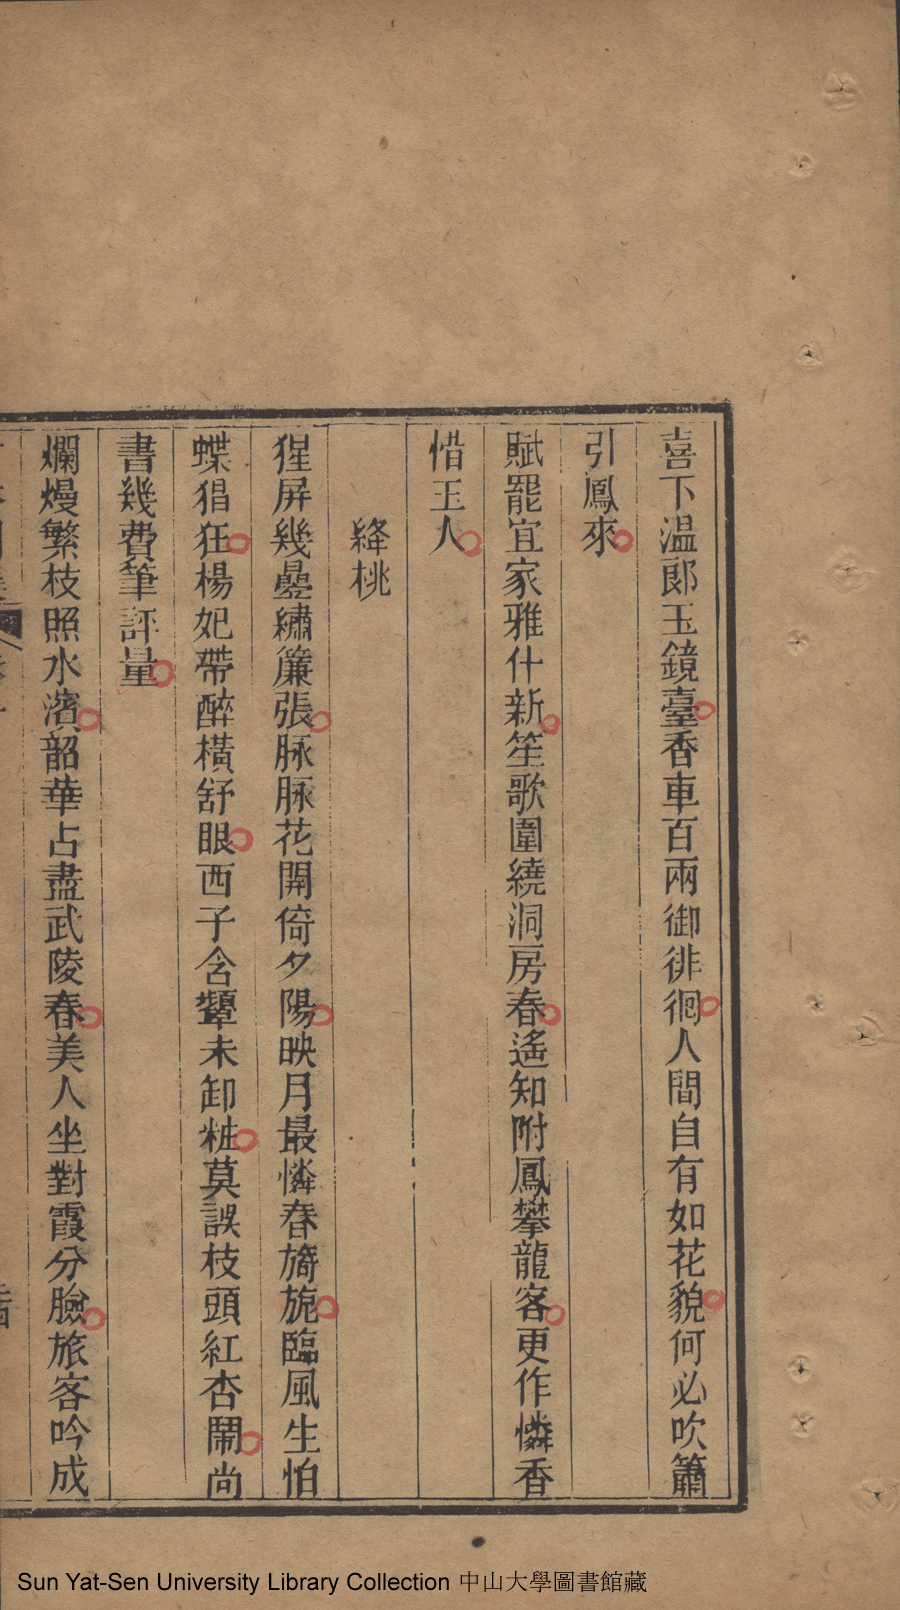 喜下温郎玉鏡臺香車百兩御徘徊人間自有如花貌何必吹簫
引鳳來
賦罷宜家雅什新笙歌圍繞洞房春遙知附鳳攀龍客更作憐香
惜玉人
絳桃
猩屏幾疊繡簾張脉脉花開倚夕陽映月最憐春旖旎臨風生怕
蝶猖狂楊妃帶醉橫舒眼西子含顰未卸粧莫誤枝頭紅杏鬧尚
書幾費筆評量
爛熳繁枝照水濱韶華占盡武陵春美人坐對霞分臉旅客吟成
Sun Yat-Sen University Library Collection 中山大學圖書館藏